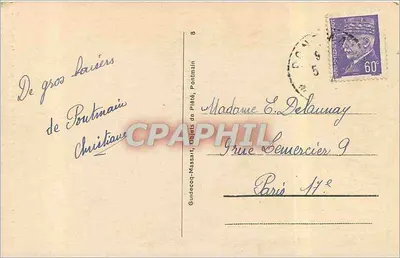 De gros baisers
de Pontmain
Christiane
Guidecoq-Massart, Objets de Piété, Pontmain
8
60c
CPAPHIL
Madame E. Delaunay
9 rue Lemercier 9
Paris 17e